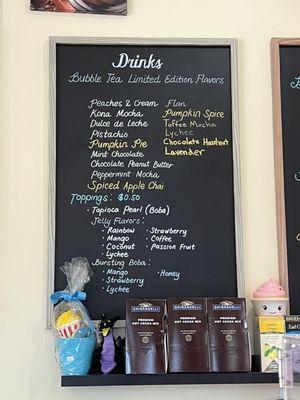 Drinks
Bubble Tea Limited Edition Flavors
Peaches & Cream
Kona Mocha
Dulce de Leche
Pistachio
Pumpkin Pie
Mint Chocolate
Chocolate Peanut Butter
Peppermint Mocha
Spiced Apple Chai
Flan
Pumpkin Spice
Toffee Mocha
Lychee
Chocolate Hazelnut
Lavender
Toppings: $0.50
• Tapioca Pearl (Boba)
• Jelly Flavors:
• Rainbow
• Mango
• Coconut
• Lychee
• Strawberry
• Coffee
• Passion Fruit
• Bursting Boba:
• Mango
• Strawberry
• Lychee
• Honey
GHIRARDELLI
PREMIUM
HOT COCOA MIX
GHIRARDELLI
PREMIUM
HOT COCOA MIX
GHIRARDELLI
PREMIUM
HOT COCOA MIX